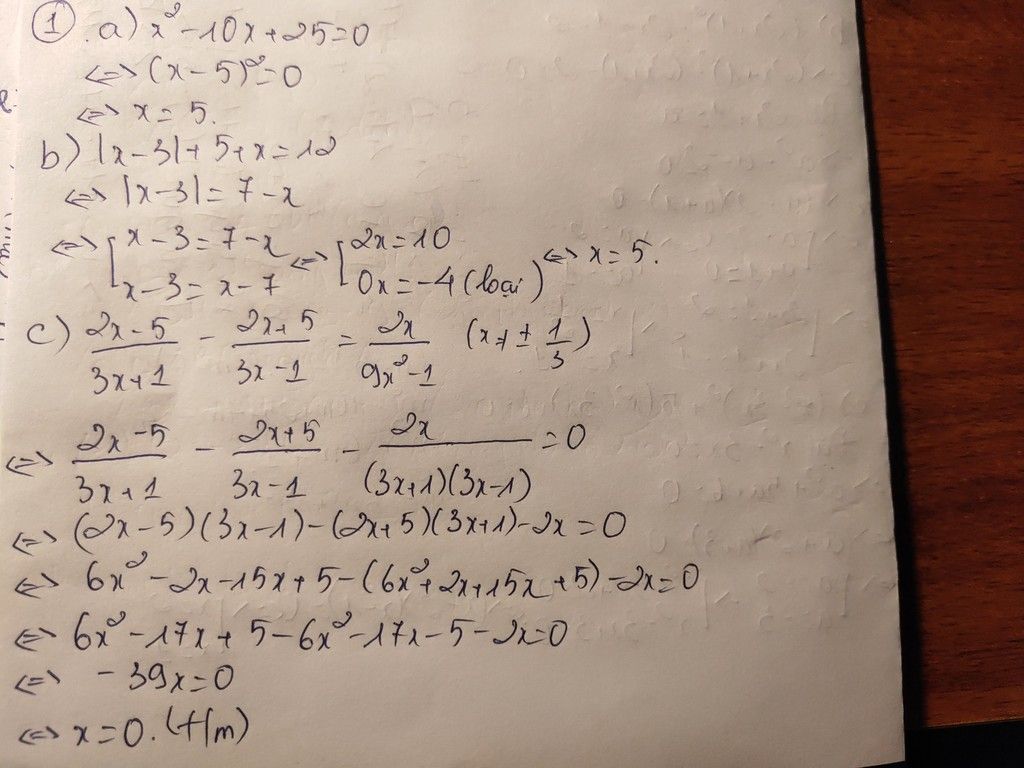 ① a) x² - 10x + 25 = 0
<=> (x - 5)² = 0
<=> x = 5.
b) |x - 3| + 5 + x = 12
<=> |x - 3| = 7 - x
<=> [ x - 3 = 7 - x <=> [ 2x = 10 <=> x = 5.
x - 3 = x - 7 0x = -4 (loại)
c) (2x - 5)/(3x + 1) - (2x + 5)/(3x - 1) = 2x/(9x² - 1) (x ≠ ± 1/3)
<=> (2x - 5)/(3x + 1) - (2x + 5)/(3x - 1) - 2x/((3x + 1)(3x - 1)) = 0
<=> (2x - 5)(3x - 1) - (2x + 5)(3x + 1) - 2x = 0
<=> 6x² - 2x - 15x + 5 - (6x² + 2x + 15x + 5) - 2x = 0
<=> 6x² - 17x + 5 - 6x² - 17x - 5 - 2x = 0
<=> - 39x = 0
<=> x = 0. (t/m)